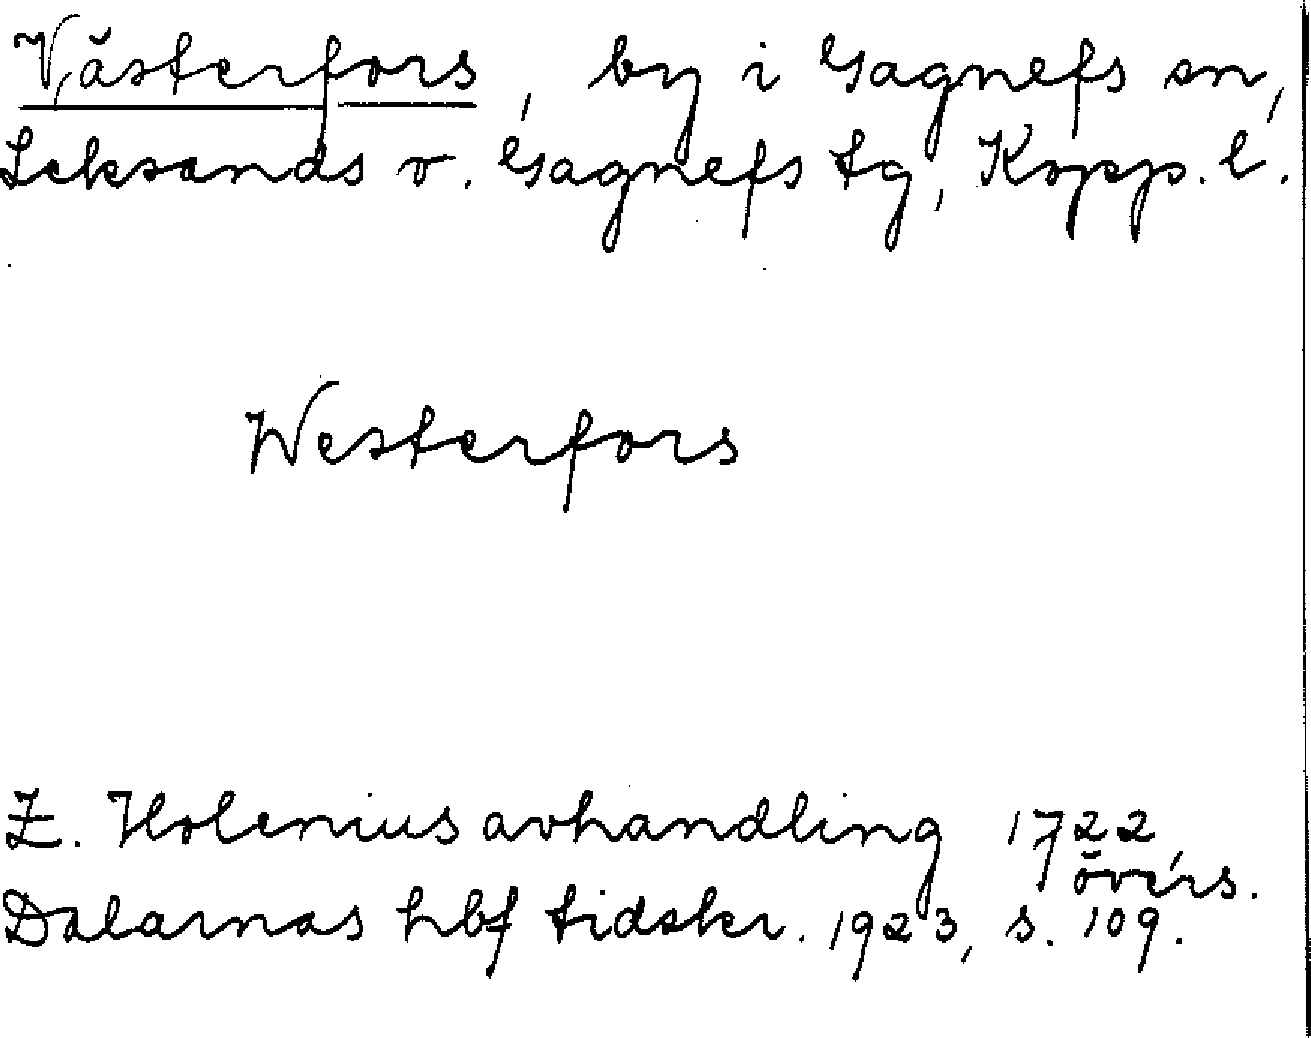 Västerfors, by i Gagnefs sn,
Leksands o. Gagnefs tg, Kopp. l.
Westerfors
Z. Holenius avhandling 1722,
övers.
Dalarnas hbf tidskr. 1923, s. 109.